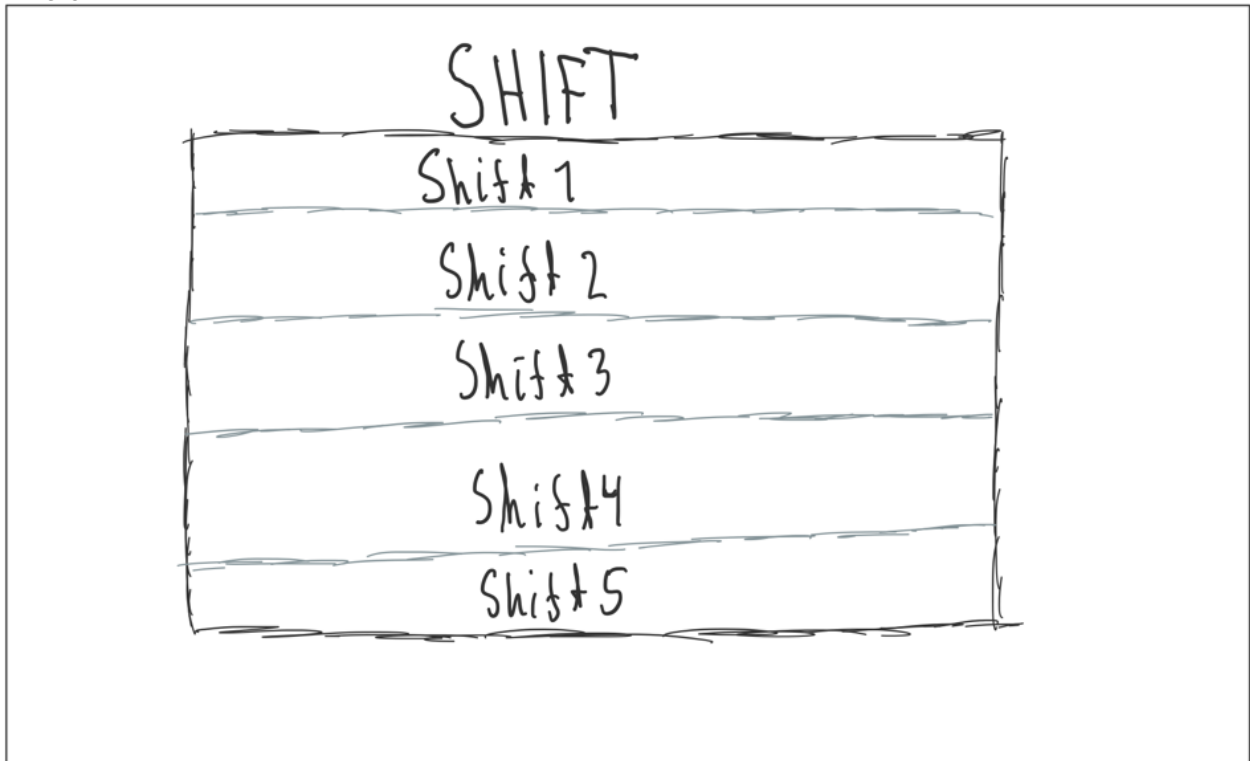 SHIFT
Shift 1
Shift 2
Shift 3
Shift 4
Shift 5